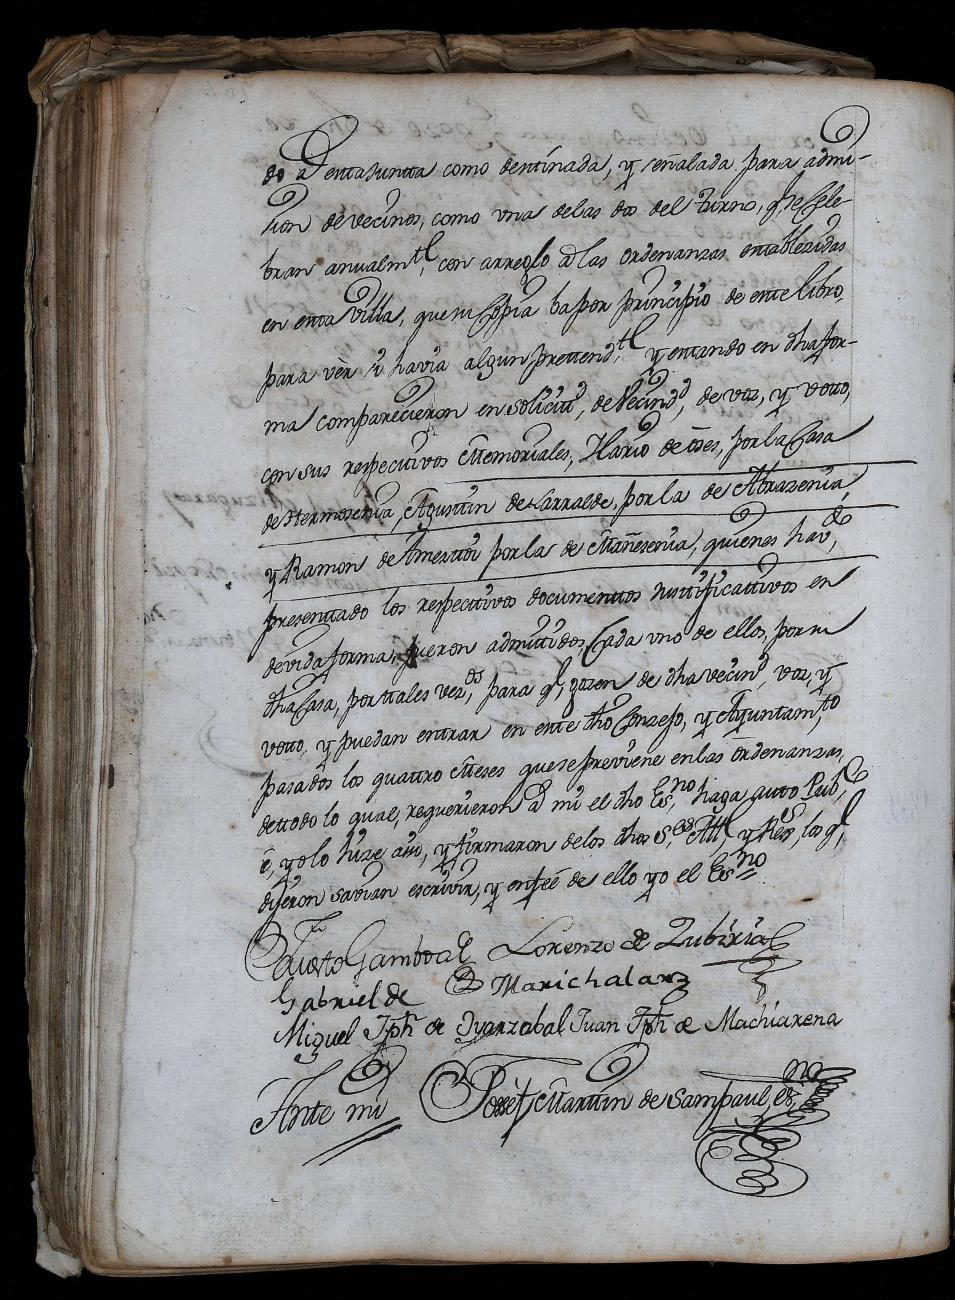 do a esta Juntta como destinada, y señalada para admi-
sion de vecinos, como vna delas dos del turno, q̃ se Cele-
bran anualm.te, con arreglo a las ordenanzas establezidas
en esta Villa, que su Copia ba por principio de este Libro,
para vèr si havia algun prettend.te y estando en dha for-
ma comparecieron en solicitt, de Vecind.d, de voz, y votto,
con sus respecttivos Memoriales, Ylario de oses, por la Casa
de Hermosenia, Agustin de Larralde, por la de Abrazenia,
y Ramon de Amestoi por la de Mañesenia, quienes hav.do,
presenttado los respecttivos documenttos justtificattivos en
devida forma, fueron admittidos, Cada vno de ellos, por su
dha Casa, por ttales vez.os para q̃ gozen de dha vecind, voz, y
votto, y puedan entrar en este dho Conzejo, y Ayuntam.to
pasados los quattro Meses que se previene en las òrdenanzas,
de ttodo lo qual, requerieron a mi el dho Es.no haga autto Pub,co
è, yo lo hize assi, y firmaron delos dhos S.es Alc, y Reg.s, los q.e
dijeron savian escrivir, y en feè de ello yo el Es.no
Fausto Gamboa Lorenzo de Zubiria
Gabriel de Marichalar
Miguel Jph de Oyarzabal Juan Jph de Machiarena
Ante mi Joseph Martin de Sampaul, es.no